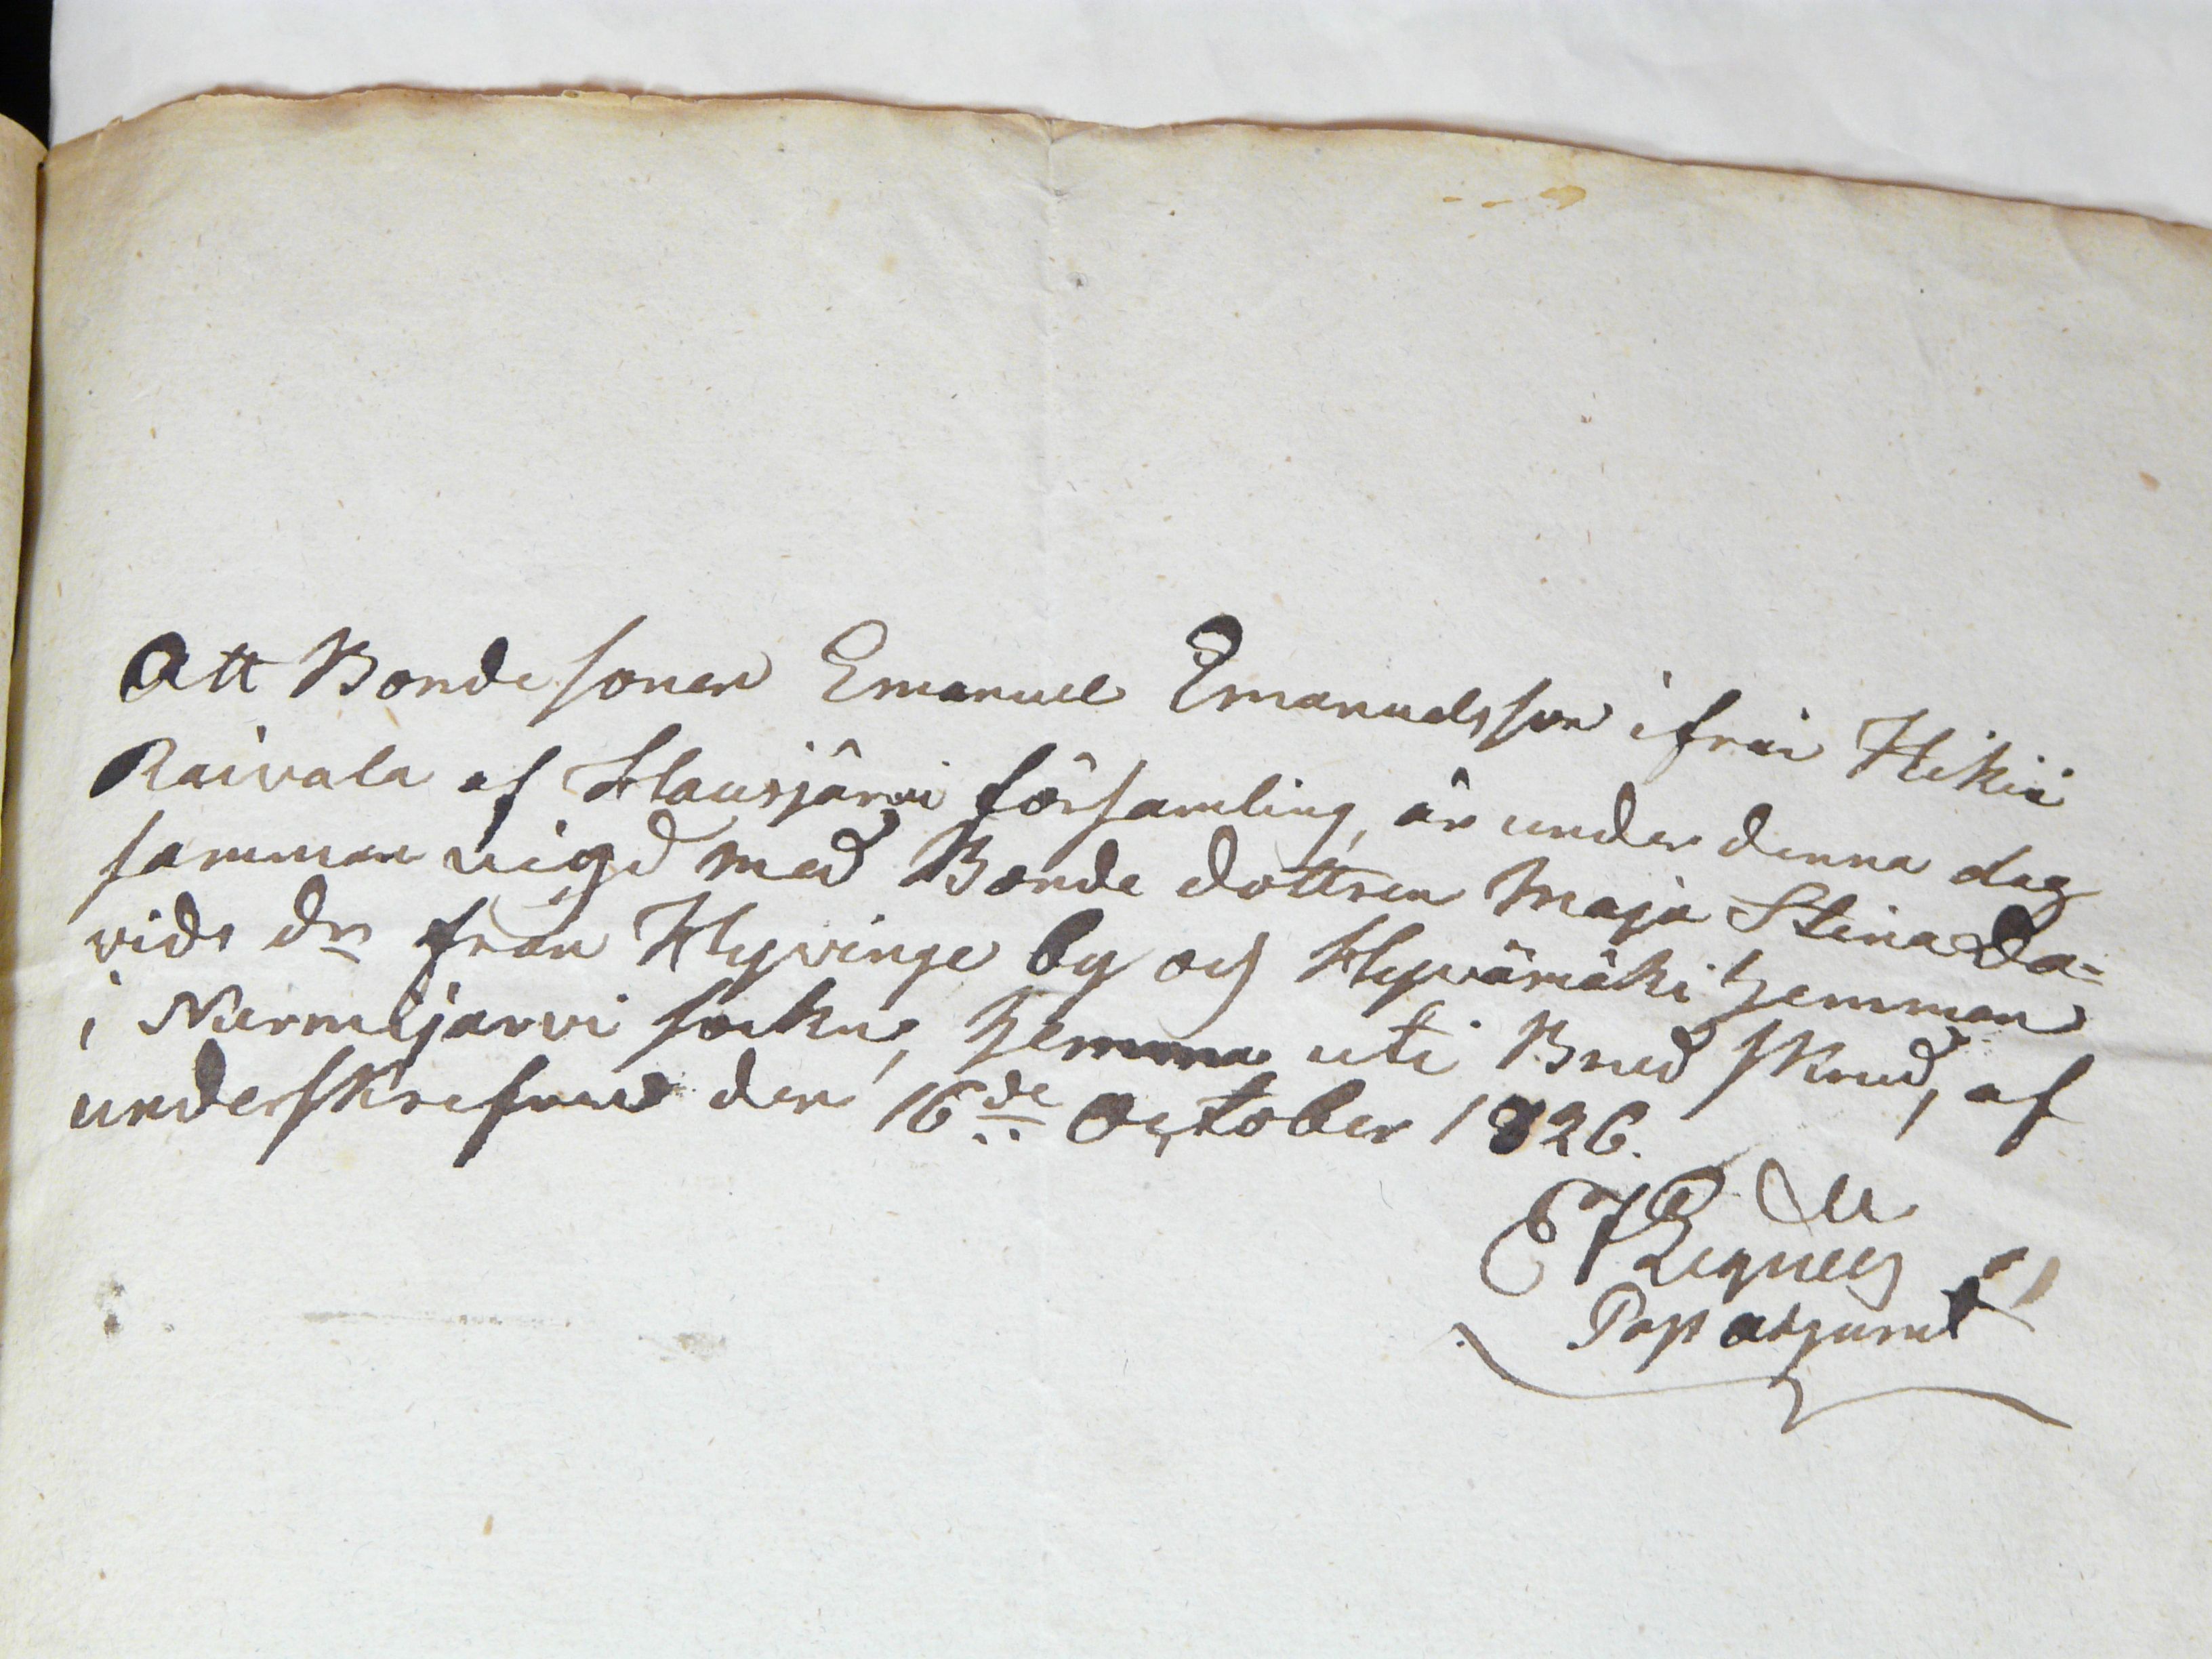 Att Bondesonen Emanuel Emanuelsson ifrån Hikiä
Raivala af Hausjärvi församling, är under denna dag
samman vigd med Bonde dottren Maja Stina Da=
vids dr från Hyvinge by och Hyvämäki hemman
i Nurmijärvi sockn, hemma uti Brud skrud, af
underskrefven den 16de October 1826.
Past adjunct